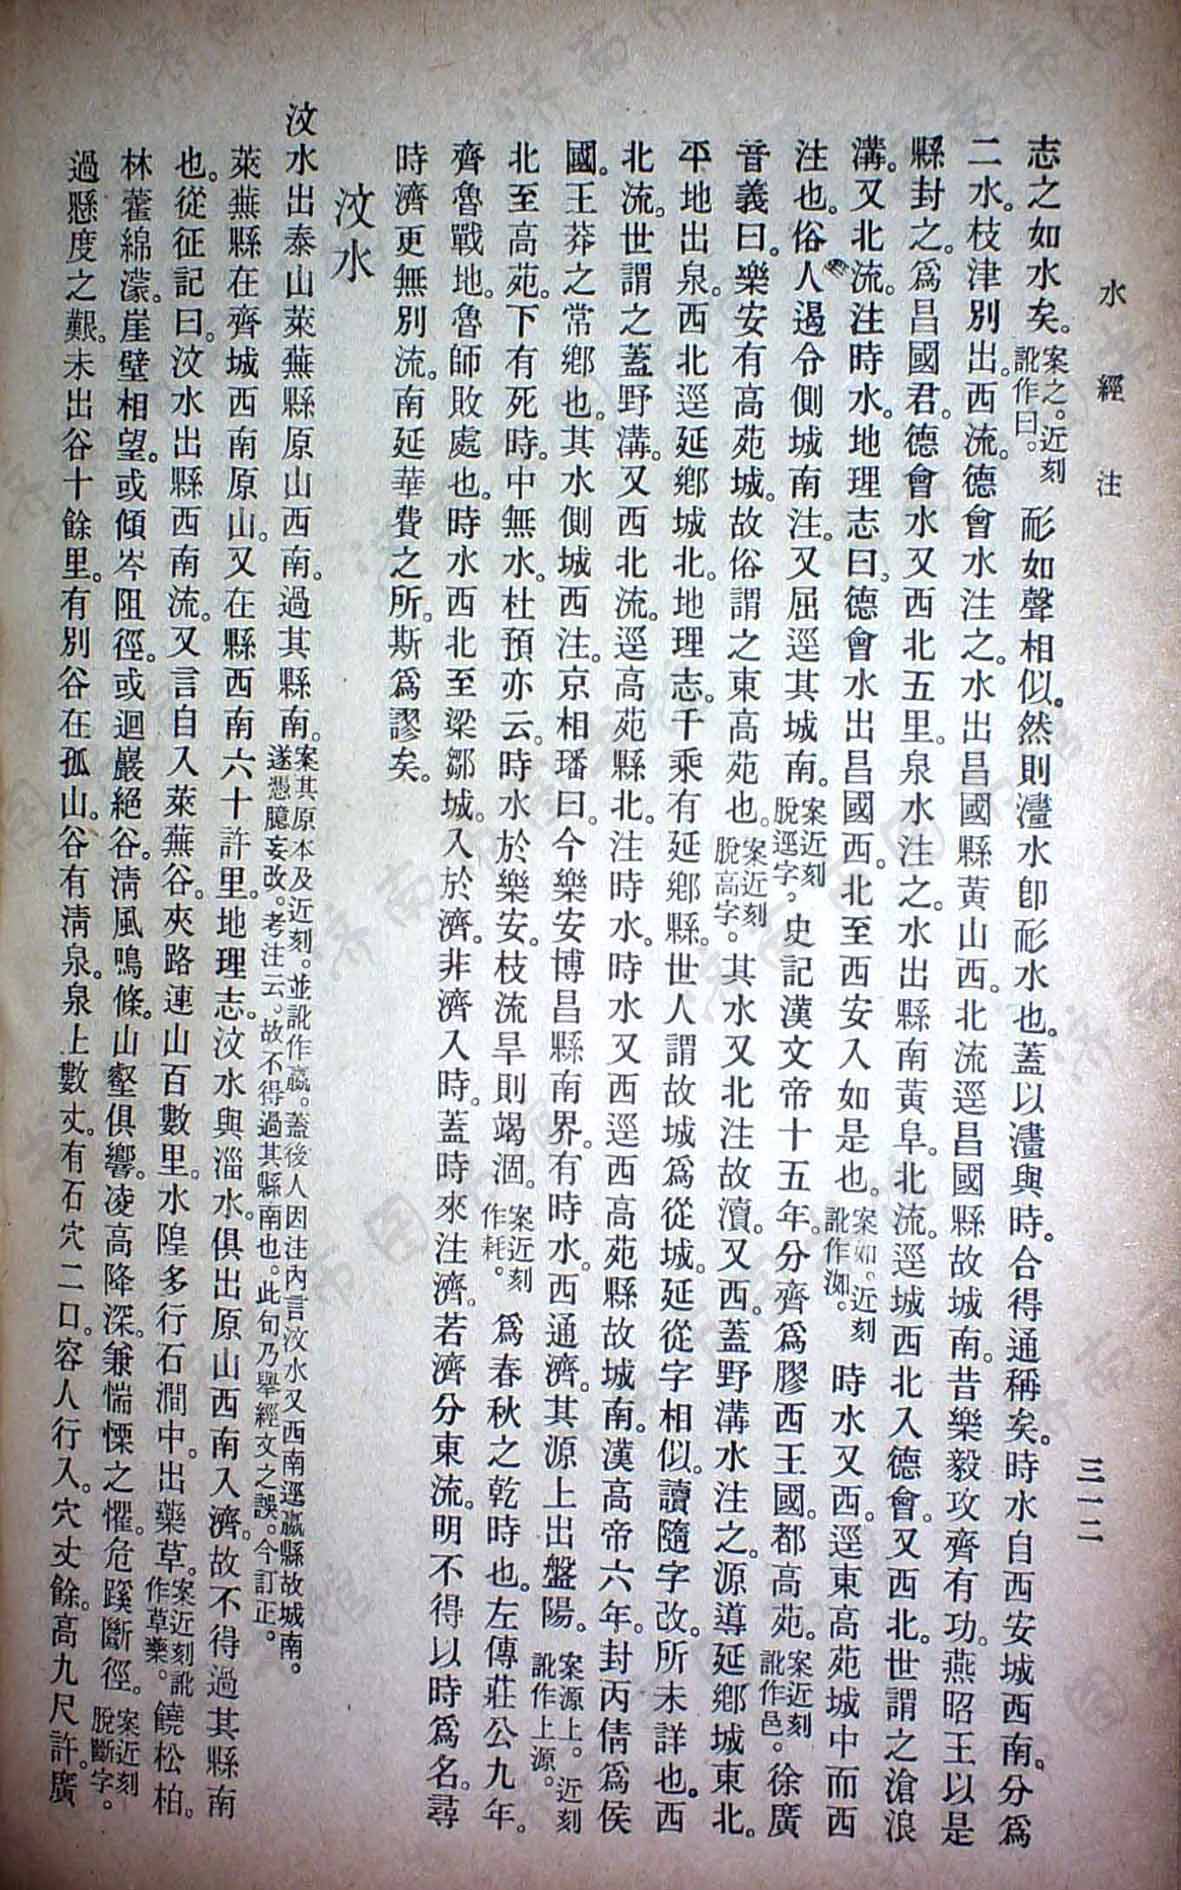 水經注
三一二
志之如水矣。案之。近刻訛作曰。耏如聲相似。然則澅水卽耏水也。蓋以澅與時。合得通稱矣。時水自西安城西南。分爲
二水。枝津別出。西流。德會水注之。水出昌國縣黃山西。北流逕昌國縣故城南。昔樂毅攻齊有功。燕昭王以是
縣封之。爲昌國君。德會水又西北五里。泉水注之。水出縣南黃阜。北流。逕城西北入德會。又西北。世謂之滄浪
溝。又北流。注時水。地理志曰。德會水出昌國西。北至西安入如是也。案如。近刻訛作洳。時水又西。逕東高苑城中而西
注也。俗人遏令側城南注。又屈逕其城南。案近刻脫逕字。史記漢文帝十五年。分齊爲膠西王國。都高苑。案近刻訛作邑。徐廣
音義曰。樂安有高苑城。故俗謂之東高苑也。案近刻脫高字。其水又北注故瀆。又西。蓋野溝水注之。源導延鄉城東北。
平地出泉。西北逕延鄉城北。地理志。千乘有延鄉縣。世人謂故城爲從城。延從字相似。讀隨字改。所未詳也。西
北流。世謂之蓋野溝。又西北流。逕高苑縣北。注時水。時水又西逕西高苑縣故城南。漢高帝六年。封丙倩爲侯
國。王莽之常鄉也。其水側城西注。京相璠曰。今樂安博昌縣南界。有時水。西通濟。其源上出盤陽。案源上。近刻訛作上源。
北至高苑。下有死時。中無水。杜預亦云。時水於樂安。枝流旱則竭涸。案近刻作耗。爲春秋之乾時也。左傳莊公九年。
齊魯戰地。魯師敗處也。時水西北至梁鄒城。入於濟。非濟入時。蓋時來注濟。若濟分東流。明不得以時爲名。尋
時濟更無別流。南延華費之所。斯爲謬矣。
汶水
汶水出泰山萊蕪縣原山西南。過其縣南。案其原本及近刻。並訛作嬴。蓋後人因注內言汶水又西南逕嬴縣故城南。遂憑臆妄改。考注云。故不得過其縣南也。此句乃舉經文之誤。今訂正。
萊蕪縣在齊城西南原山。又在縣西南六十許里。地理志。汶水與淄水。俱出原山西南入濟。故不得過其縣南
也。從征記曰。汶水出縣西南流。又言自入萊蕪谷。夾路連山百數里。水隍多行石澗中。出藥草。案近刻訛作草藥。饒松柏。
林藿綿濛。崖壁相望。或傾岑阻徑。或迴巖絕谷。淸風鳴條。山壑俱響。凌高降深。兼惴慄之懼。危蹊斷徑。案近刻脫斷字。
過懸度之艱。未出谷十餘里。有別谷在孤山。谷有淸泉。泉上數丈。有石穴二口。容人行入。穴丈餘。高九尺許。廣